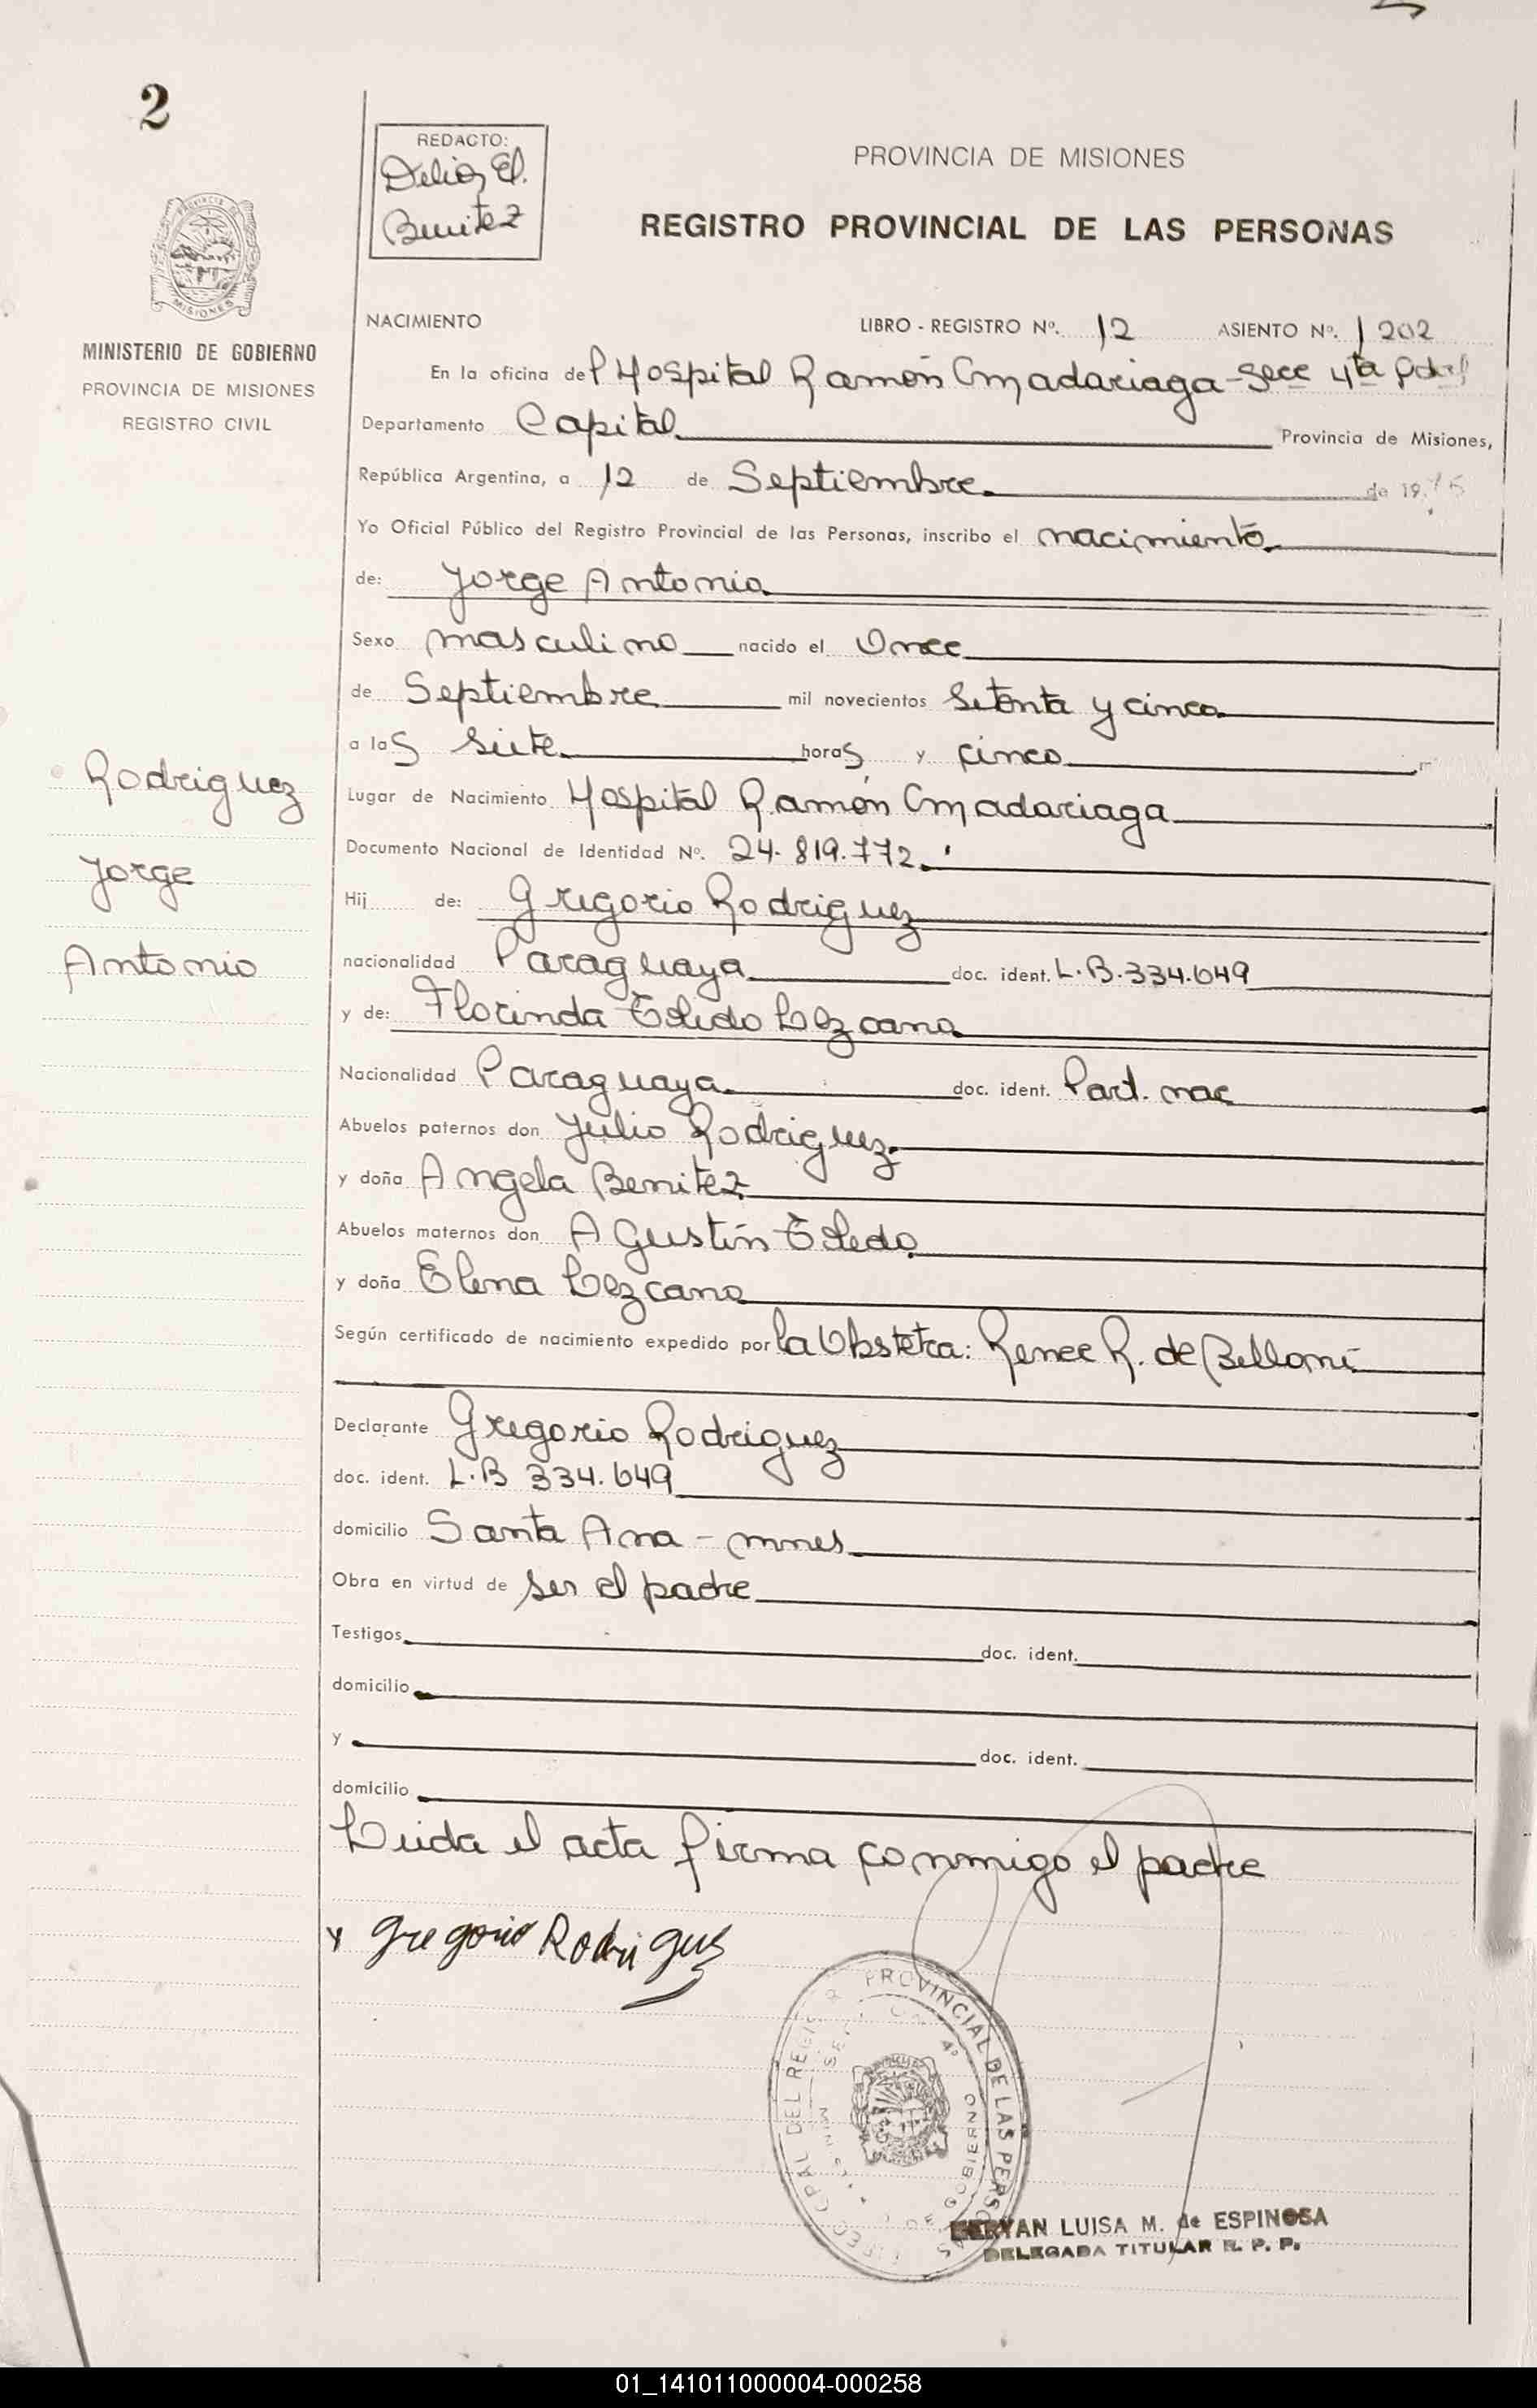 2
REDACTO:
Delia El.
Benitez
PROVINCIA DE MISIONES
REGISTRO PROVINCIAL DE LAS PERSONAS
MISIONES
MINISTERIO DE GOBIERNO
PROVINCIA DE MISIONES
REGISTRO CIVIL
NACIMIENTO LIBRO - REGISTRO Nº. 12 ASIENTO Nº. 1202
En la oficina del Hospital Ramón Madariaga - Secc 4ta
Departamento Capital Provincia de Misiones,
República Argentina, a 12 de Septiembre de 19
Yo Oficial Público del Registro Provincial de las Personas, inscribo el nacimiento
de: Jorge Antonio
Sexo masculino nacido el Once
de Septiembre mil novecientos Setenta y cinco
a las Siete horas y cinco
Rodriguez
Jorge
Antonio
Lugar de Nacimiento Hospital Ramón Madariaga
Documento Nacional de Identidad Nº. 24.819.772
Hij de: Gregorio Rodriguez
nacionalidad Paraguaya doc. ident. L.B.334.649
y de: Florinda Toledo Lezcano
Nacionalidad Paraguaya doc. ident. Part. nac
Abuelos paternos don Julio Rodriguez
y doña Angela Benitez
Abuelos maternos don Agustín Toledo
y doña Elena Lezcano
Según certificado de nacimiento expedido por la Obstetra: Renee R. de Belloni
Declarante Gregorio Rodriguez
doc. ident. L.B 334.649
domicilio Santa Ana - mnes
Obra en virtud de ser el padre
Testigos doc. ident.
domicilio
y doc. ident.
domicilio
Leida el acta firma conmigo el padre
x Gregorio Rodriguez
PROVINCIAL DE LAS PERSONAS
LUISA M. de ESPINOSA
DELEGADA TITULAR R. P. P.
01_141011000004-000258